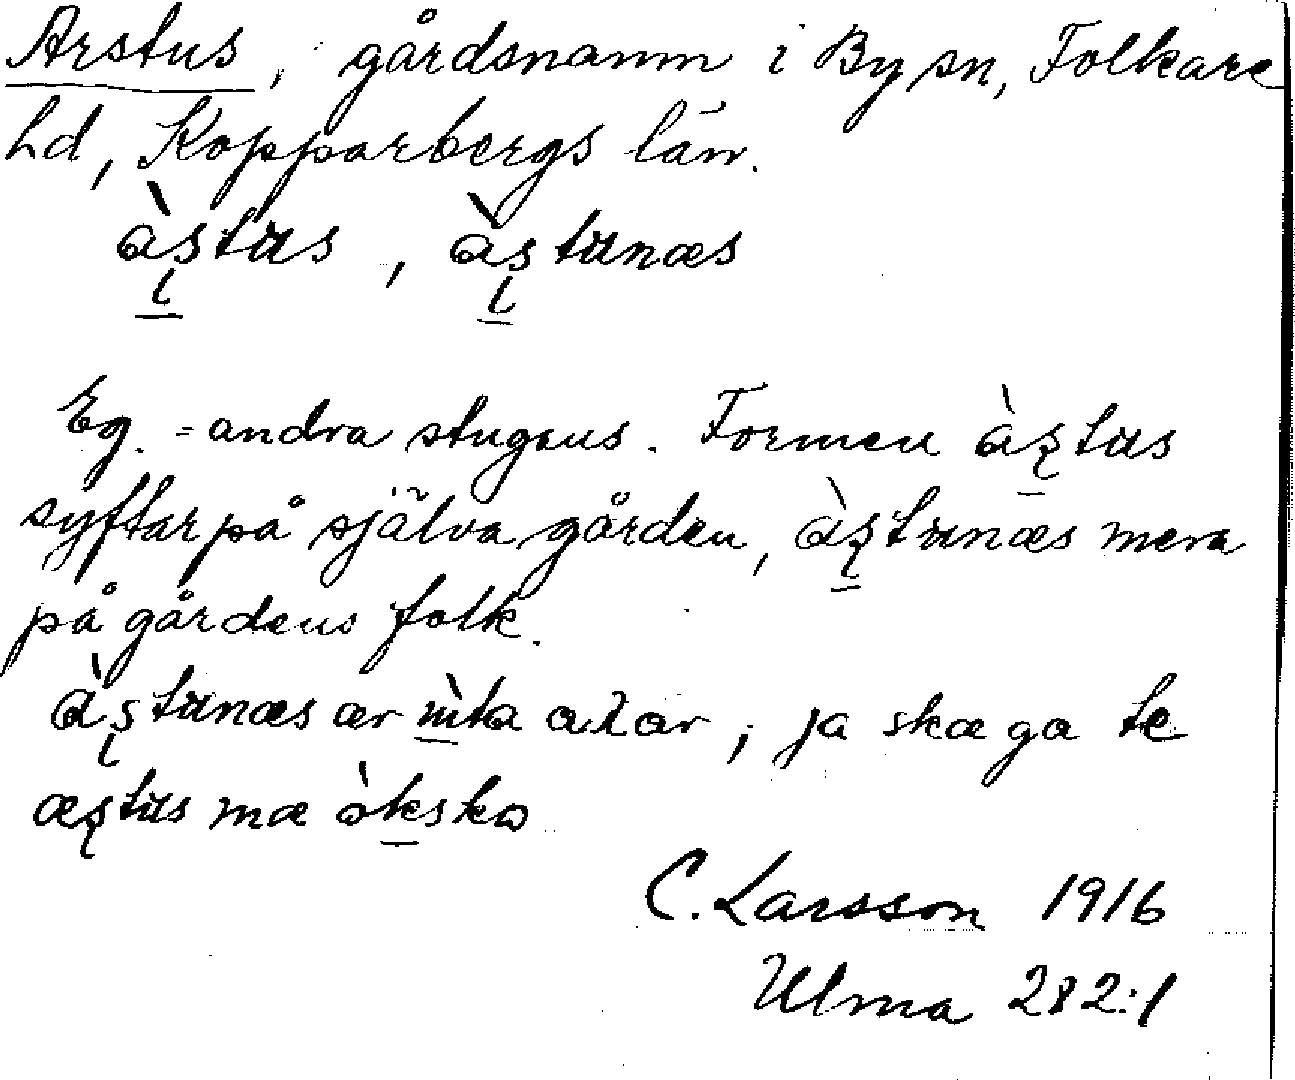 Arstus, gårdsnamn i By sn, Folkare
hd, Kopparbergs län.
àṣtus, àṣtunæs
Eg. = andra stugans. Formen àṣtus
syftar på själva gården, àṣtunæs mera
på gårdens folk.
àṣtunæs ær ... aλar, ja skæ ga te
æṣtus mæ òksko
C. Larsson 1916
Ulma 282:1